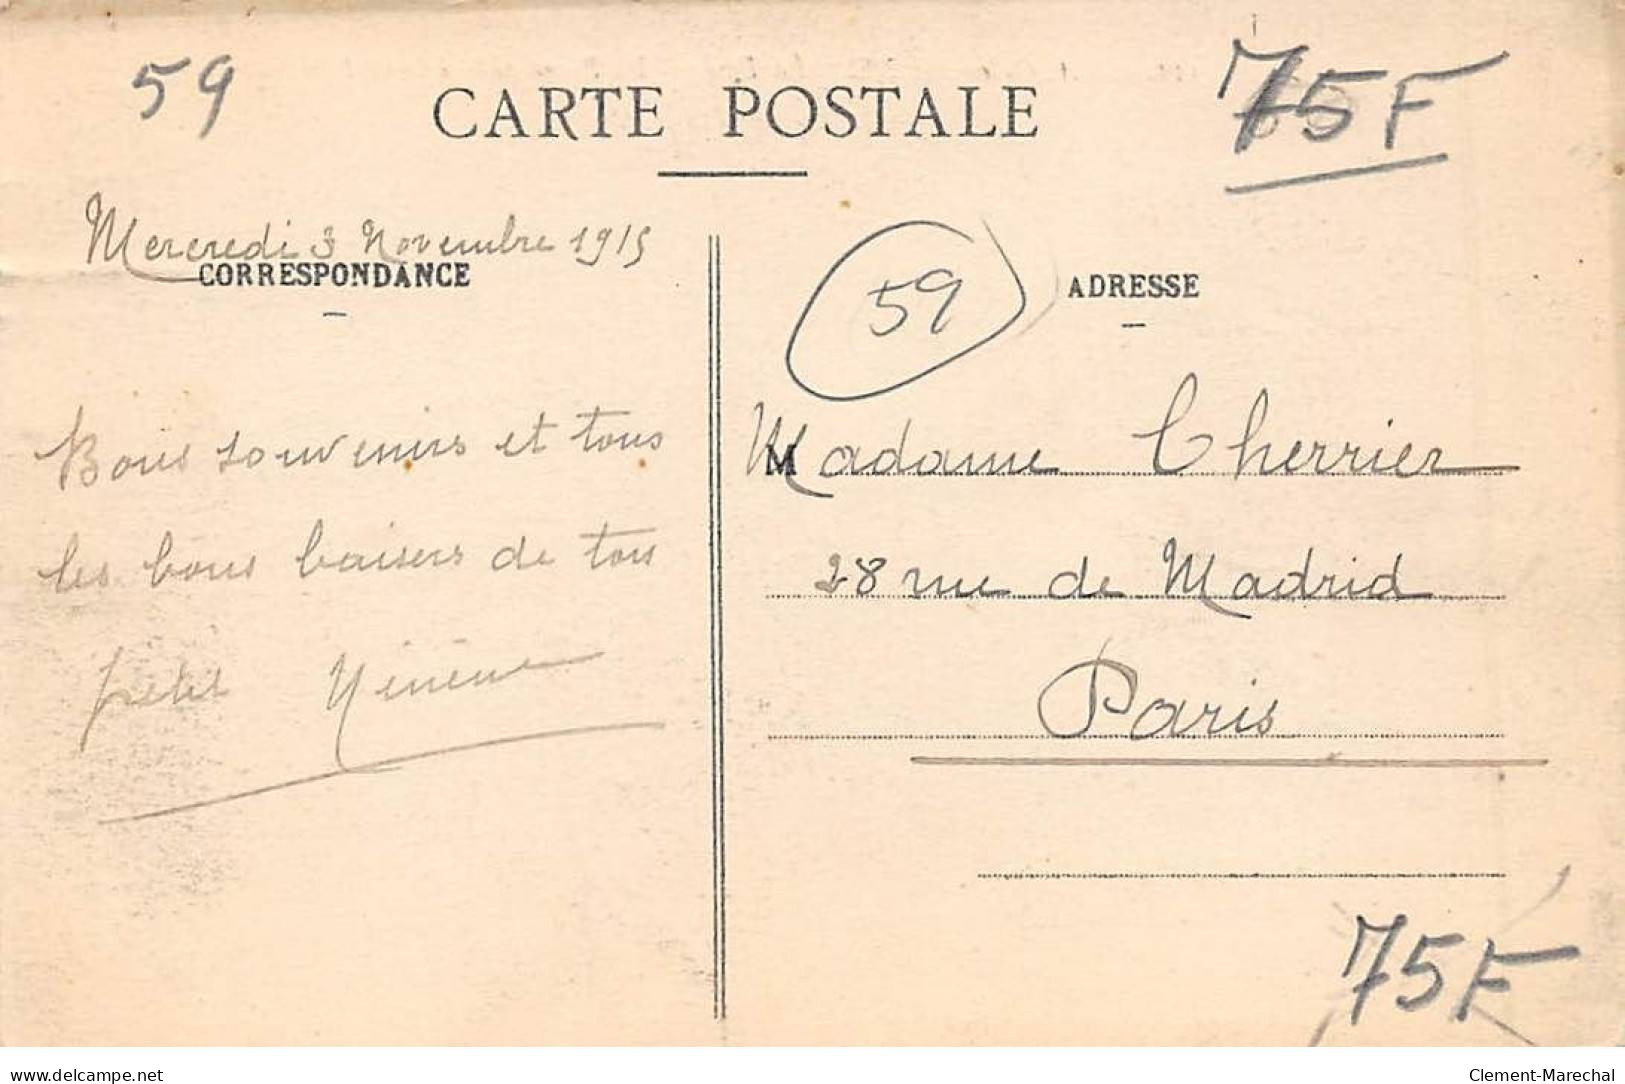 59
CARTE POSTALE
75F
Mercredi 3 Novembre 1915
CORRESPONDANCE
59
ADRESSE
Bons souvenirs et tous
les bons baisers de ton
petit
M
Madame Cherrier
28 rue de Madrid
Paris
75F
www.delcampe.net
Clement-Marechal